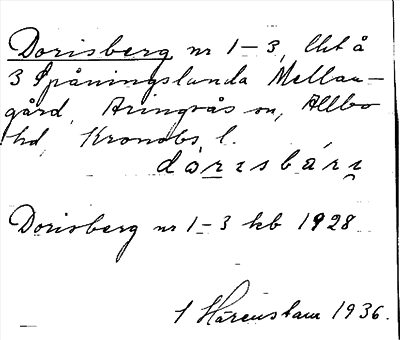 Dorisberg nr 1–3, lht å
3 Spåningslanda Mellan-
gård, Aringsås sn, Allbo
hd, Kronobs l.
dórısbárı
Dorisberg nr 1–3 kb 1928
1936.